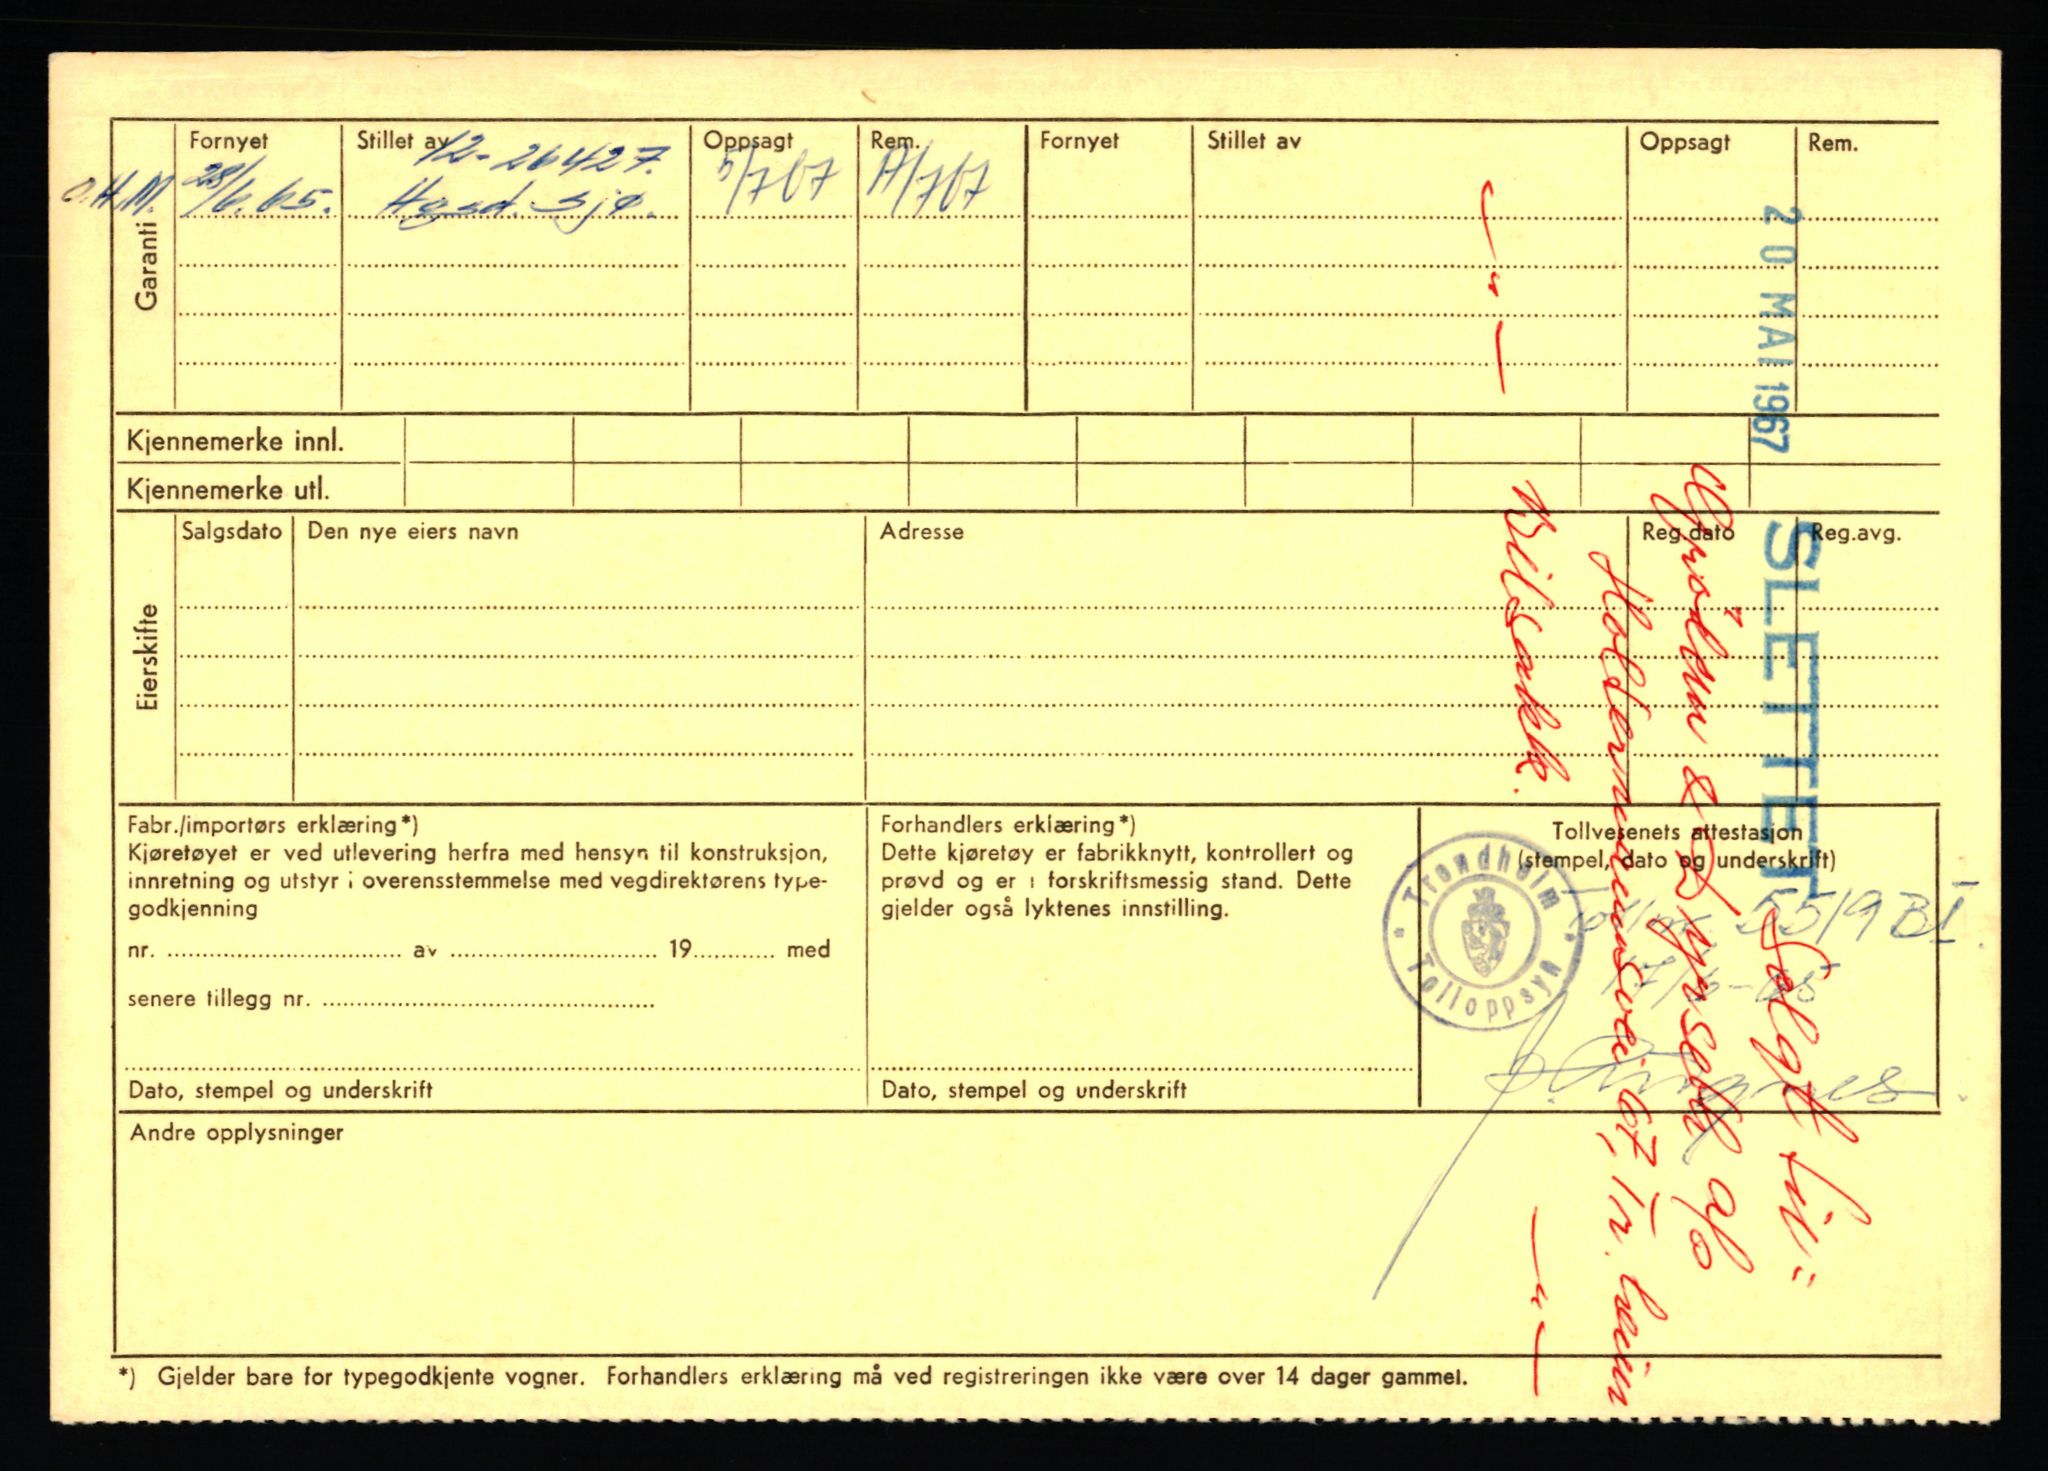 Garanti
Fornyet
Stillet av
Oppsagt
Rem.
Fornyet
Stillet av
Oppsagt
Rem.
O.H.M.
28/6.65.
12-26427.
Hgsd. Sjø.
5/7 67
A/767
20 MAI 1967
SLETTET
Kjennemerke innl.
Kjennemerke utl.
Eierskifte
Salgsdato
Den nye eiers navn
Adresse
Reg.dato
Reg.avg.
Solgt til:
Holdermannsvei
Bilsakk.
— " —
— " —
Fabr./importørs erklæring*)
Kjøretøyet er ved utlevering herfra med hensyn til konstruksjon,
innretning og utstyr i overensstemmelse med vegdirektørens type-
godkjenning
nr. .......... av .......... 19.......... med
senere tillegg nr. ..........
Dato, stempel og underskrift
Forhandlers erklæring*)
Dette kjøretøy er fabrikknytt, kontrollert og
prøvd og er i forskriftsmessig stand. Dette
gjelder også lyktenes innstilling.
Dato, stempel og underskrift
Tollvesenets attestasjon
(stempel, dato og underskrift)
Trondheim
Tolloppsyn
5519 BI.
17/6-65
Andre opplysninger
*) Gjelder bare for typegodkjente vogner. Forhandlers erklæring må ved registreringen ikke være over 14 dager gammel.